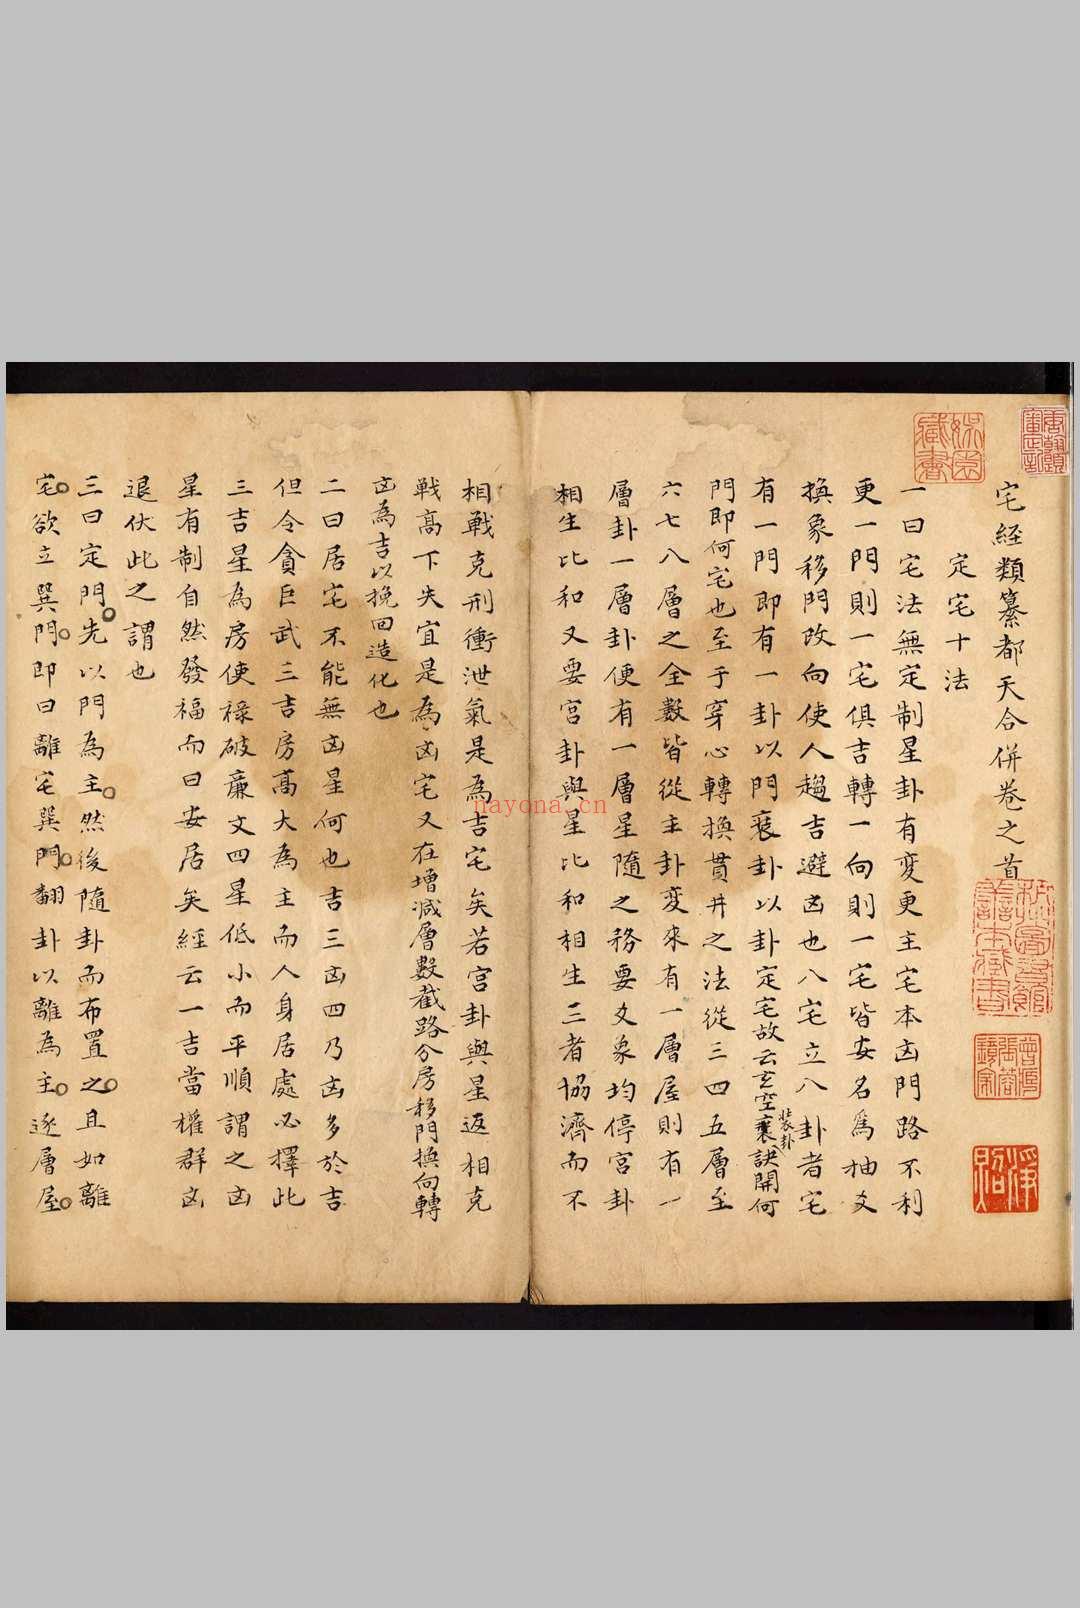 宅經類纂都天合併卷之首
定宅十法
一曰宅法無定制星卦有變更主宅本凶門路不利
更一門則一宅俱吉轉一向則一宅皆安名為抽爻
換象移門改向使人趨吉避凶也八宅立八卦者宅
有一門即有一卦以門裝卦以卦定宅故云玄空裝卦訣開何
門即何宅也至于穿心轉換貫井之法從三四五層至
六七八層之全數皆從主卦變來有一層屋則有一
層卦一層卦便有一層星隨之務要爻象均停宮卦
相生比和又要宮卦與星比和相生三者協濟而不
相戰克刑衝泄氣是為吉宅矣若宮卦與星返相克
戰高下失宜是為凶宅又在增減層數截路分房移門換向轉
凶為吉以挽回造化也
二曰居宅不能無凶星何也吉三凶四乃凶多於吉
但令貪巨武三吉房高大為主而人身居處必擇此
三吉星為房使祿破廉文四星低小而平順謂之凶
星有制自然發福而曰安居矣經云一吉當權群凶
退伏此之謂也
三曰定門先以門為主然後隨卦而布置之且如離
宅欲立巽門即曰離宅巽門翻卦以離為主逐層屋
nayona.cn